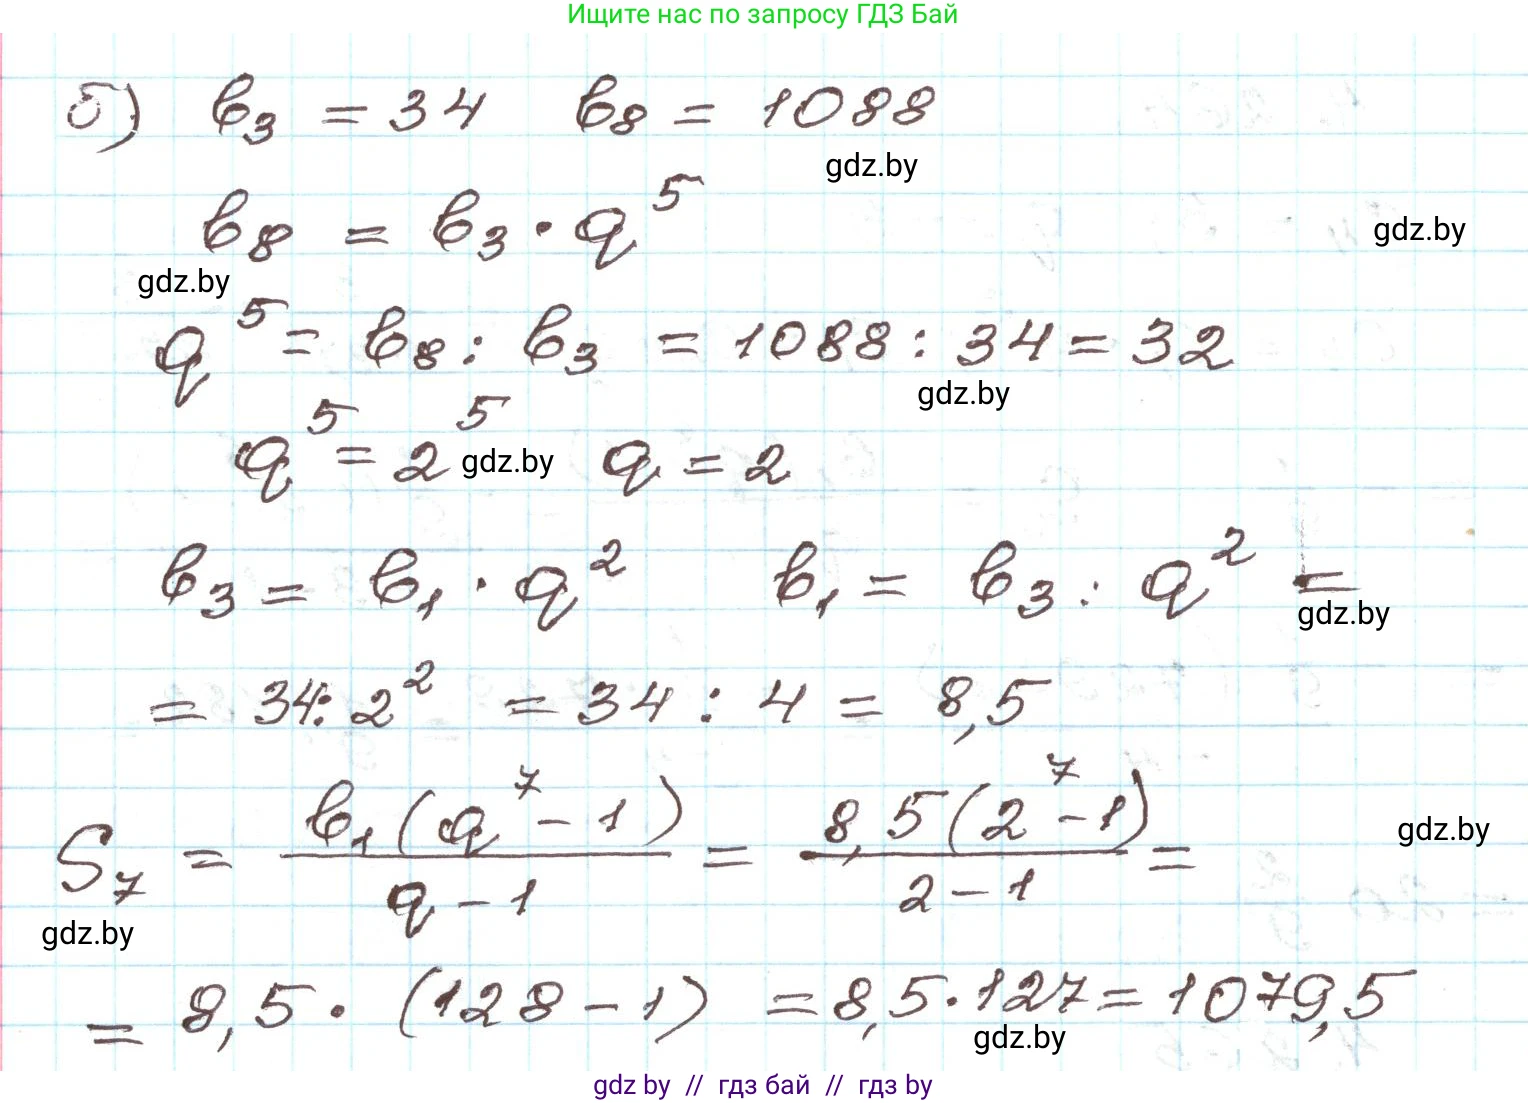 Ищите нас по запросу ГДЗ Бай
б) b₃ = 34 b₈ = 1088
gdz.by
b₈ = b₃ · q⁵
gdz.by
gdz.by
q⁵ = b₈ : b₃ = 1088 : 34 = 32
gdz.by
q⁵ = 2⁵ gdz.by q = 2
b₃ = b₁ · q² b₁ = b₃ : q² =
gdz.by
= 34 : 2² = 34 : 4 = 8,5
S₇ = b₁(q⁷ - 1) / q - 1 = 8,5(2⁷ - 1) / 2 - 1 =
gdz.by
gdz.by
= 8,5 · (128 - 1) = 8,5 · 127 = 1079,5
gdz.by
gdz by // гдз бай // гдз by